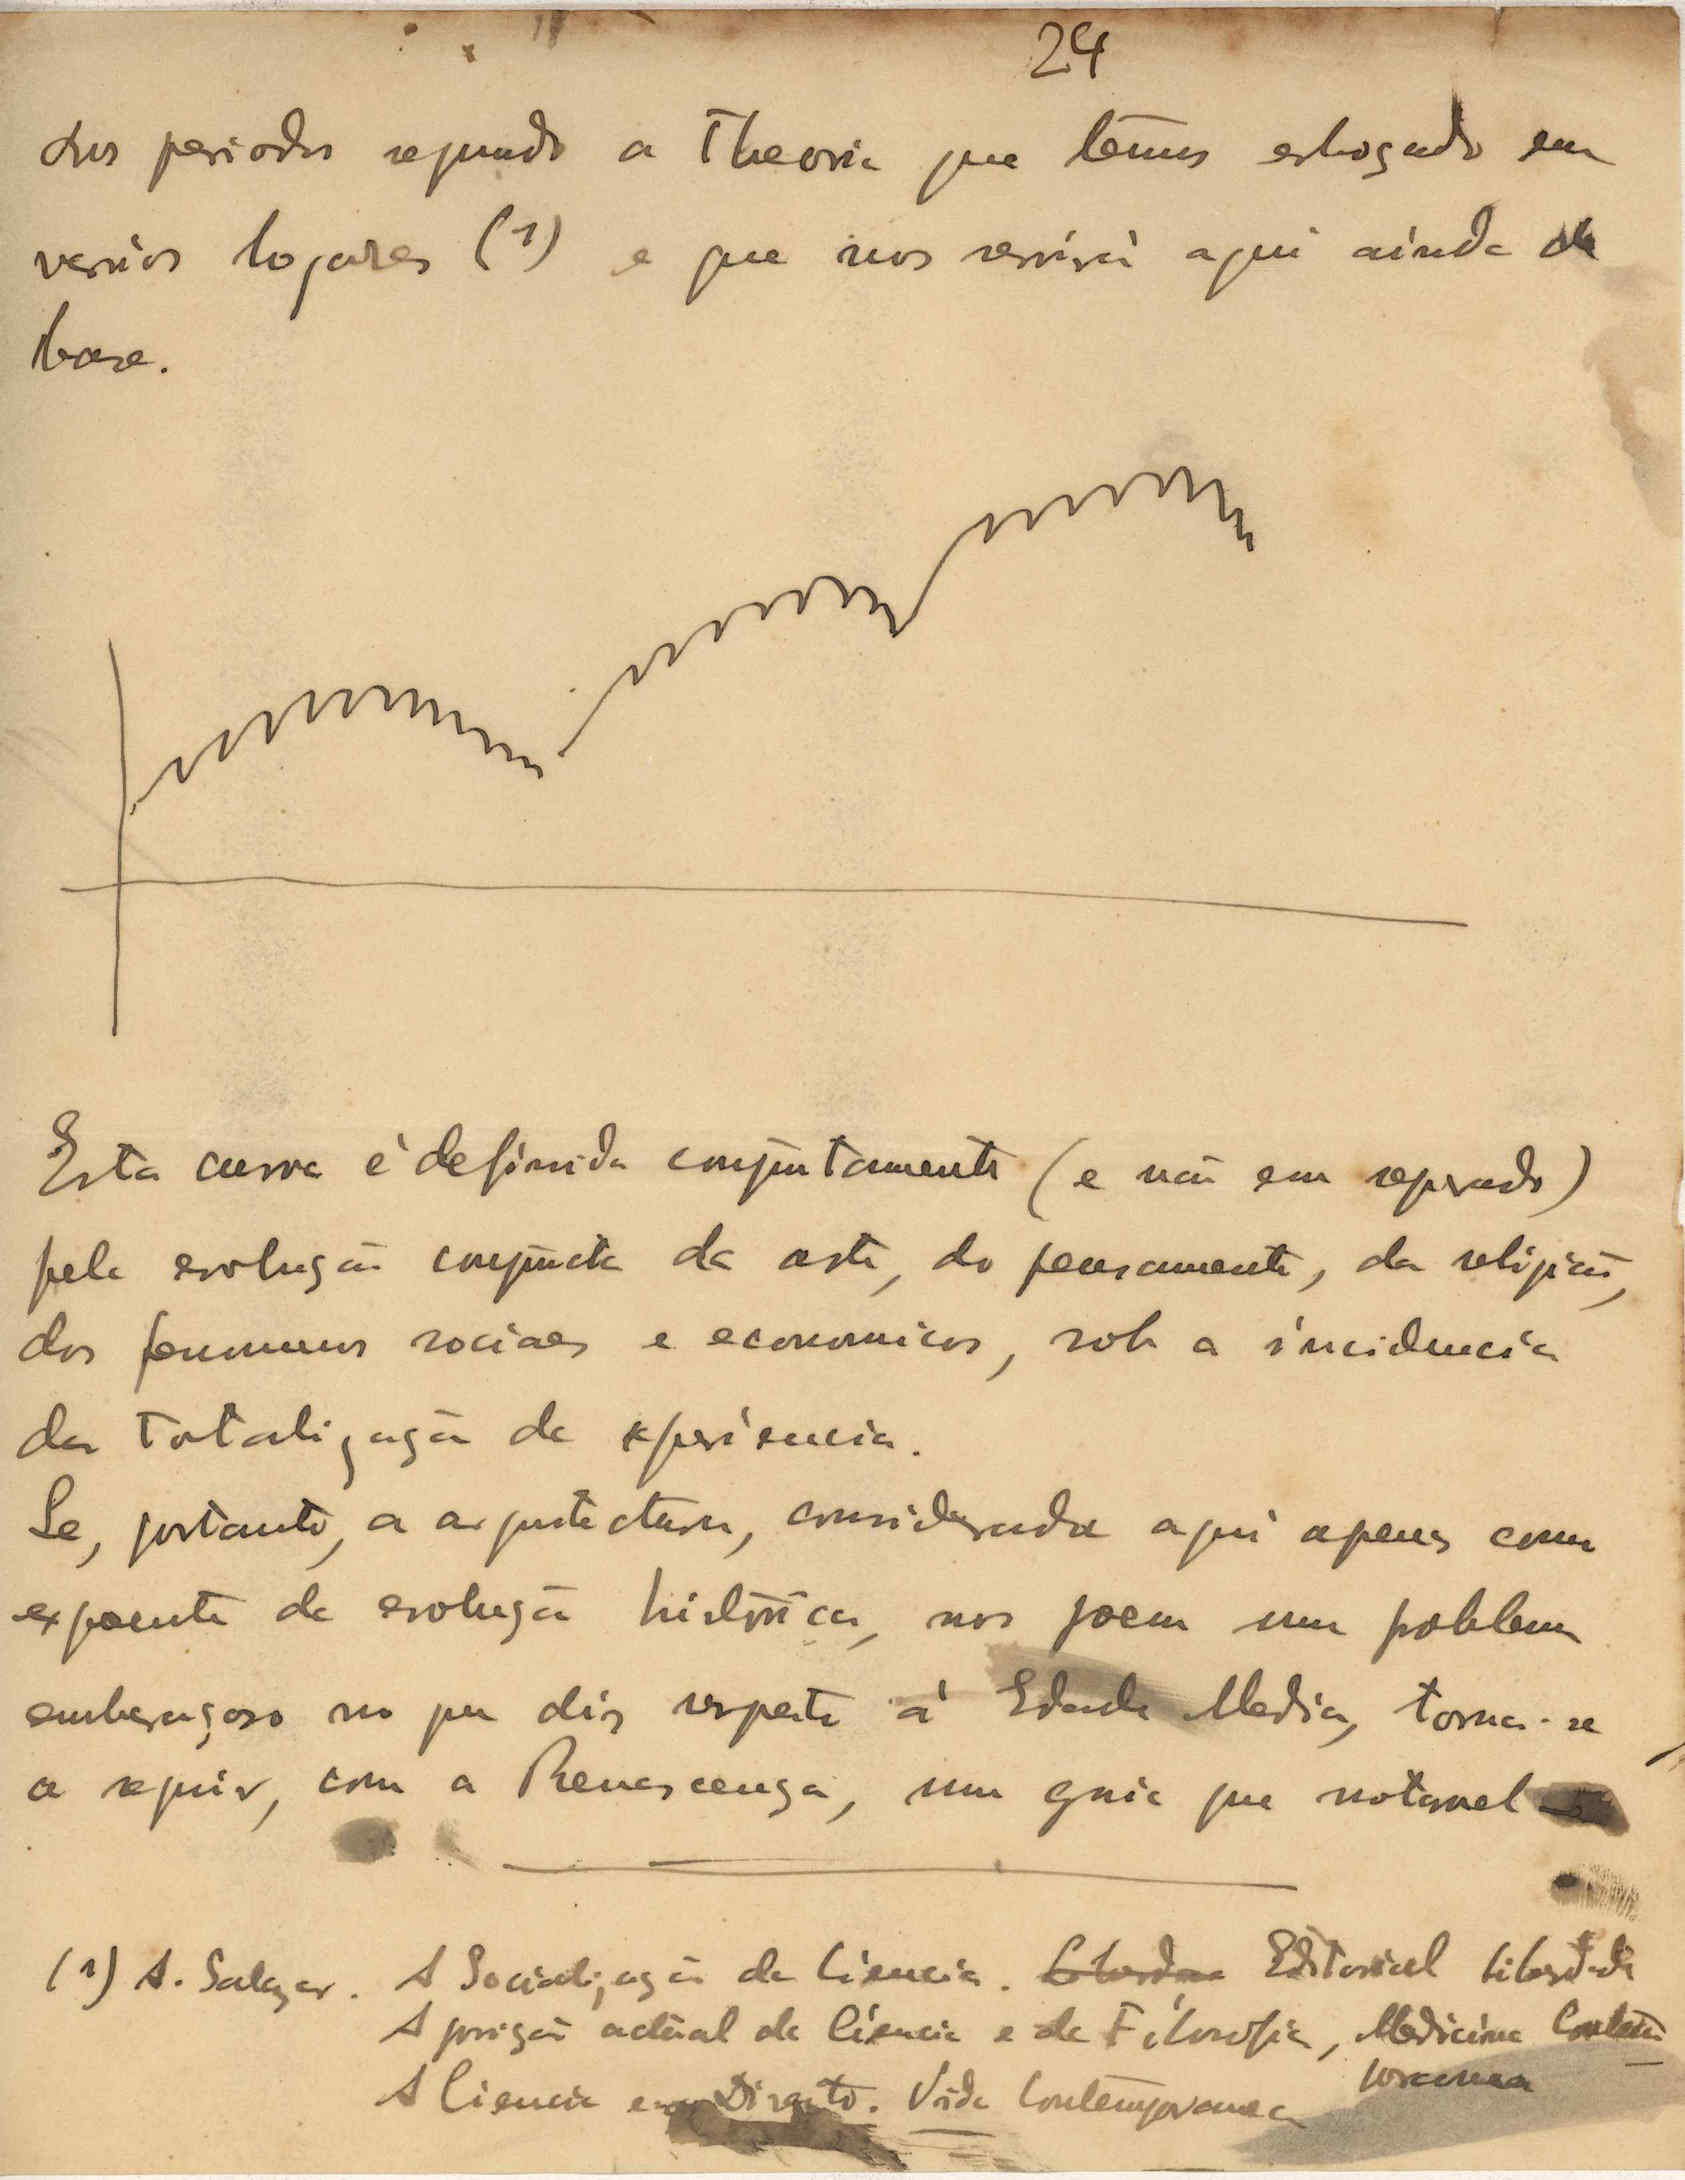 24
dos periodos segundo a Theoria que temos esboçado em
varios logares (1) e que nos servirá aqui ainda de
base.
Esta curva é definida conjuntamente (e não em separado)
pela evolução conjuncta da arte, do pensamento, da religião,
dos fenomenos sociaes e economicos, sob a incidencia
da Totalização da experiencia.
Se, portanto, a arquitectura, considerada aqui apenas como
expoente da evolução histórica, nos poem um problema
embaraçoso no que diz respeito á Edade Media, torna-se
a seguir, com a Renascença, um guia que notavel
(1) A. Salazar. A Socialização da Ciencia. Editorial Liberdade
A posição actual da Ciencia e da Filosofia, Medicina Contem
poranea
A Ciencia e o Direito. Vida Contemporanea